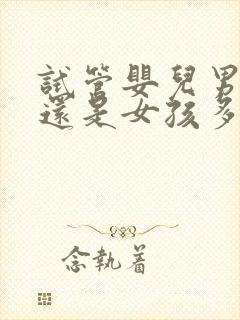 試管嬰兒男
還是女孩多
念執着